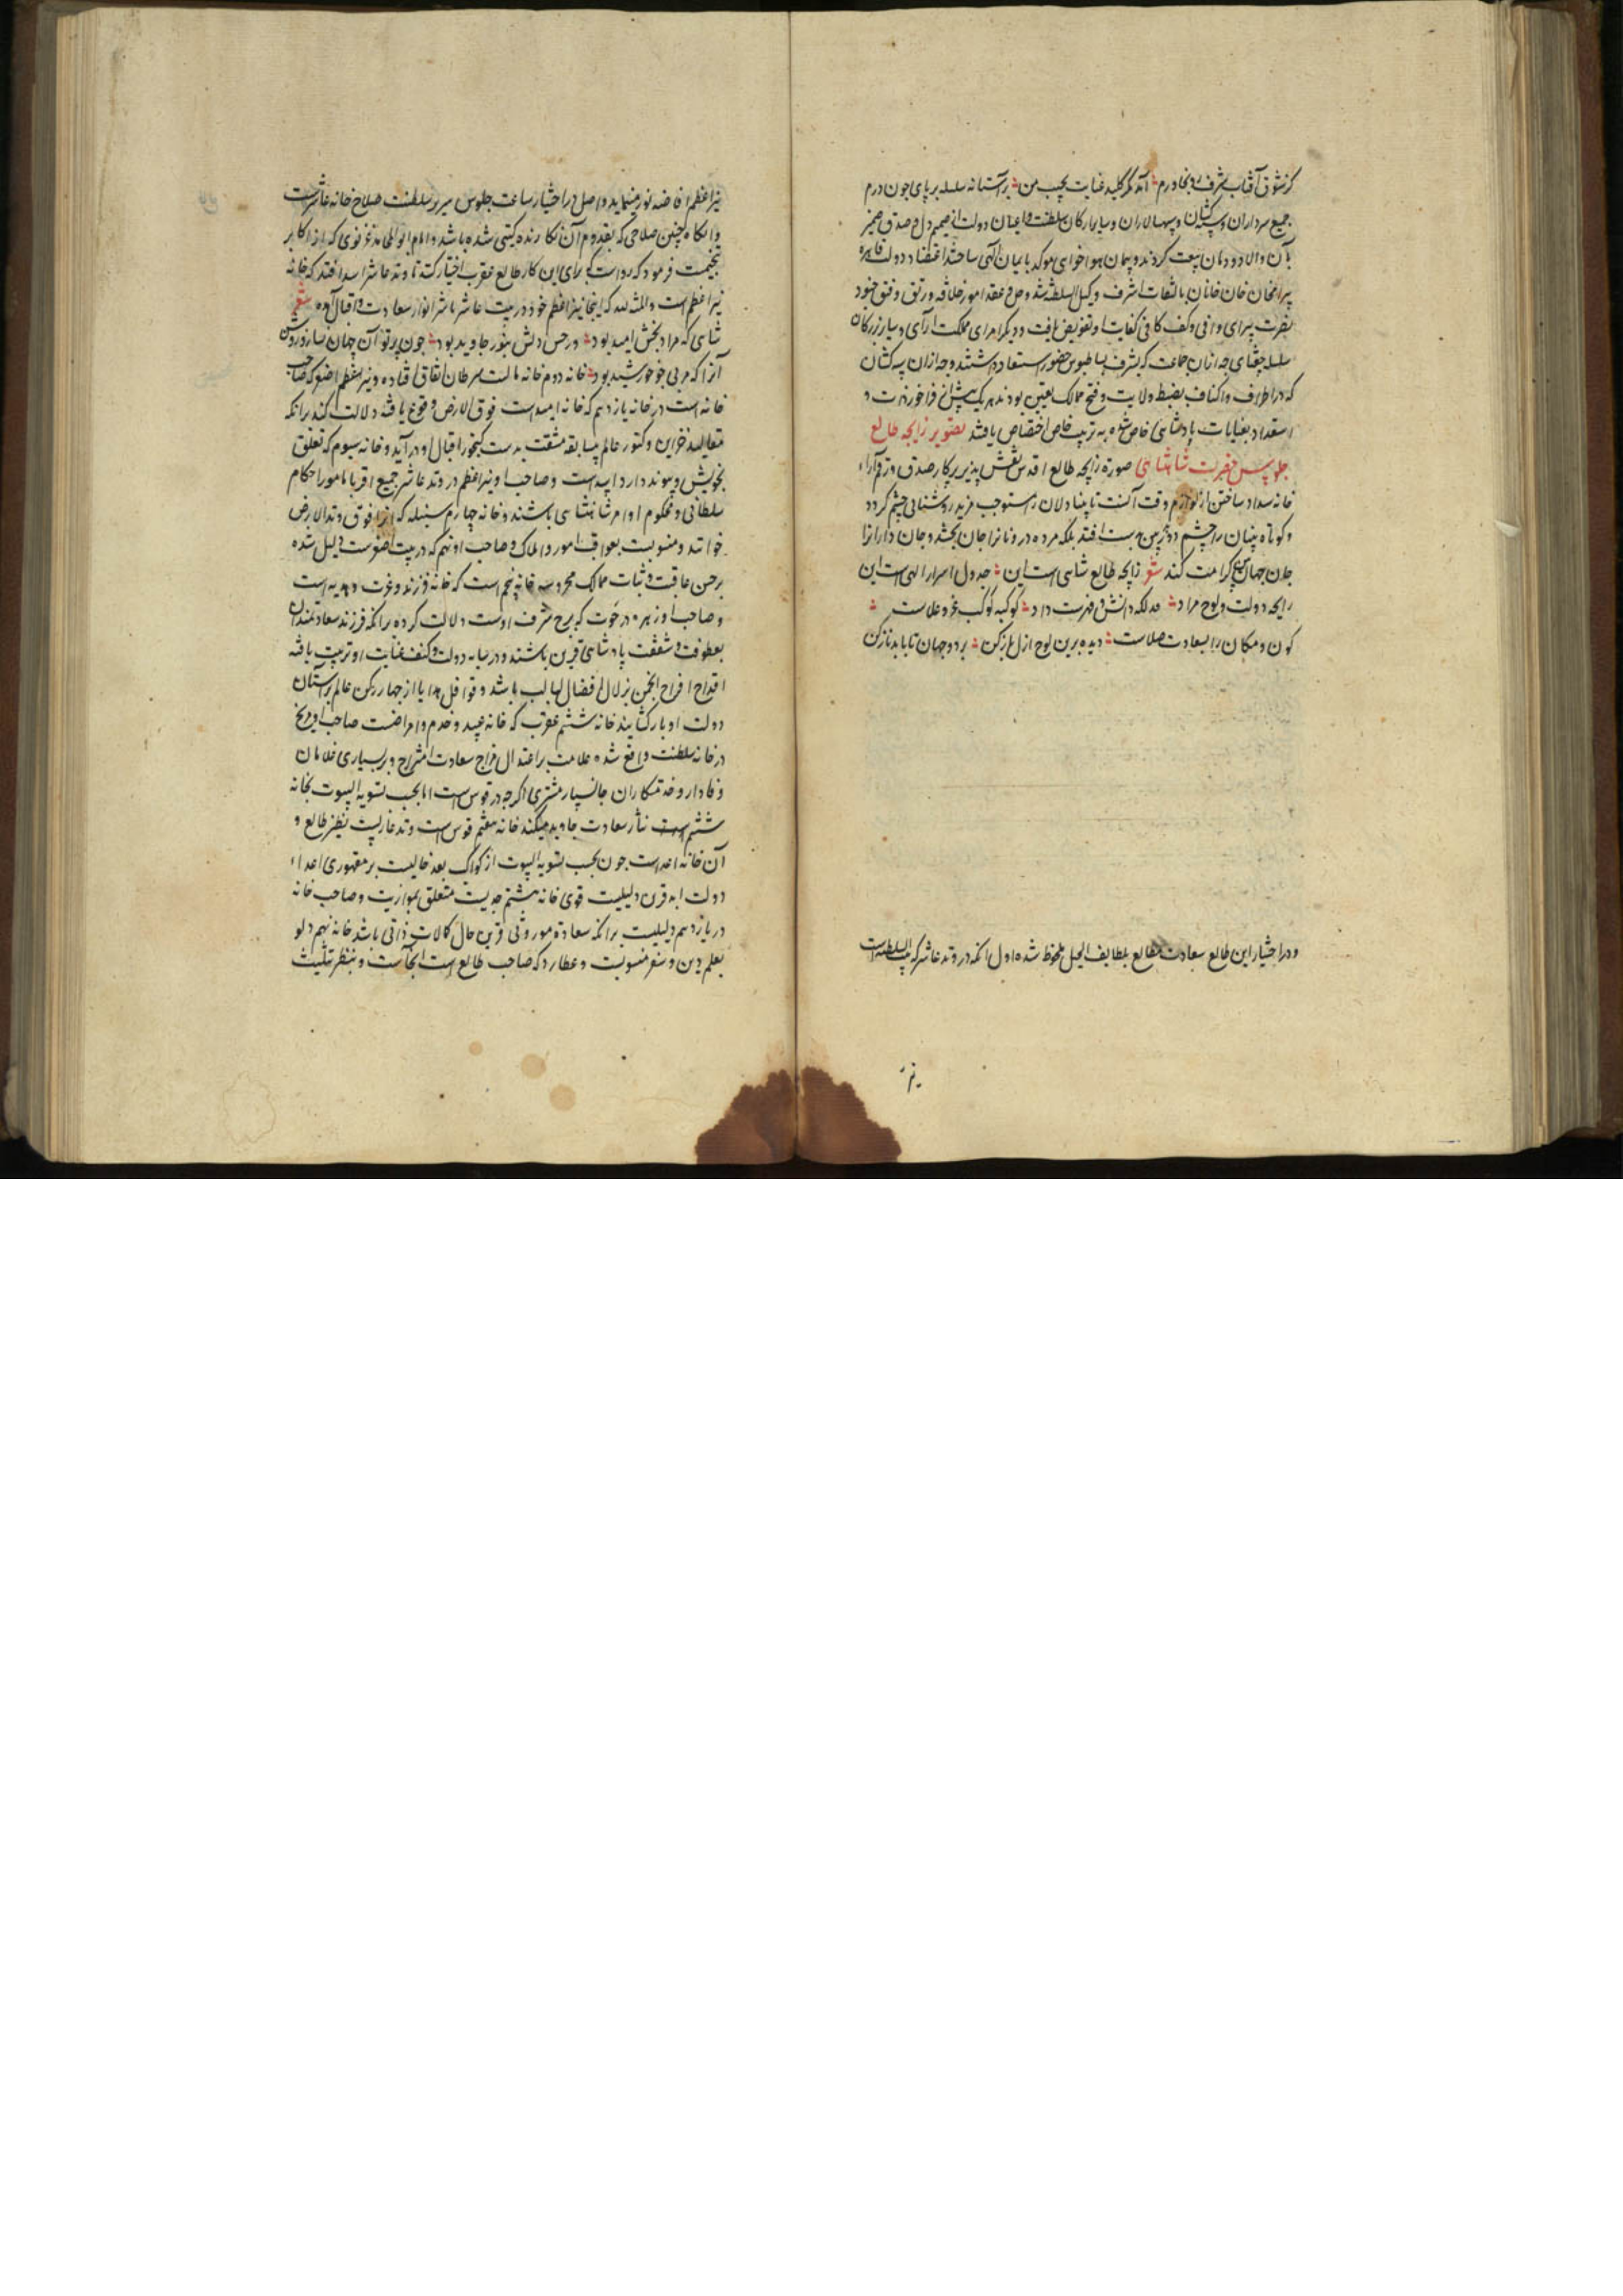 کز شوق آفتاب شرف رو بخاورم آمد مگر کلید عنایت بجیب من بر آستانه سلسله بر پای چون درم
جمیع سرداران و سپه‌کشان و سپهسالاران و سایر ارکان سلطنت و اعیان دولت از صمیم دل و صدق ضمیر
بآن والا دودمان بیعت کردند و پیمان هواخواهی موکد بایمان الهی ساختند اعتضاد دولت قاهره
بیرامخان خان خانان بالتفات اشرف وکیل السلطنة شد و حل و عقد امور خلافه و رتق و فتق جنود
نصرت برای وافی و کف کافی کفایت او تفویض یافت و دیگر امرای مملکت آرای و سایر بزرکان
سلسله جغتای چه ازان جماعت که بشرف بساط بوس حضور استسعاد داشتند و چه ازان سپه‌کشان
که در اطراف و اکناف بضبط ولایت و فتح ممالک تعین بودند هر یک بیش از فراخور خدمت و
استعداد بعنایات پادشاهی خاص شده به تربیت خاص اختصاص یافتند تصویر زایجه طالع
جلوس حضرت شاهنشاهی صورة زایجه طالع اقدس نقش پذیر پرکار صدق و رقم آراء
خانه سداد ساختن از لوازم وقت آنست تا بینادلان را مستوجب مزید روشنائی چشم گردد
و کوتاه بینان را چشم دوربین بدست افتد بلکه مرده درونانرا جان بخشد و جان دارانرا
جان جهان بین کرامت کند شعر زایجه طالع شاهی است این جدول اسرار الهی است این
رایحه دولت و لوح مراد فذلکه دانش و فهرست داد کوکبه کوکب عز و علاست
کون و مکان را بسعادت صلاست دیده برین لوح ازل باز کن بر دو جهان تا بابد ناز کن
و در اختیار این طالع سعادت مطالع بلطایف الحیل ملحوظ شده اول آنکه در وتد عاشر که بیت السلطنة است
نیر
نیر اعظم افاضه نور مینماید و اصل در اختیار ساعت جلوس سریر سلطنت صلاح خانه عاشر است
و آنگاه چنین صلاحی که بقدوم آن نکارنده گیتی شده باشد و امام ابو المحامد غزنوی که از اکابر
تنجیمست فرموده که رواست که برای این کار طالع عقرب اختیار کنند تا وتد عاشر اسد افتد که خانه
نیر اعظم است و المنة لله که اینجا نیر اعظم خود در بیت عاشر ناشر انوار سعادت و اقبال آمده شعر
شاهی که مراد بخش امید بود در حسن دلش بنور جاوید بود چون پرتو آن جهان نسازد روشن
آنرا که مربی چو خورشید بود خانه دوم خانه مالست سرطان اتفاق افتاده و نیر اصغر که صاحب
خانه است در خانه یازدهم که خانه امید است فوق الارض وقوع یافته دلالت کند بر آنکه
مقالید خزاین و کنوز عالم بیسابقه مشقت بدست گنجور اقبال او در آید و خانه سیوم که تعلق
بخویش و پیوند دارد اسد است و صاحب او نیر اعظم در وتد عاشر جمیع اقربا مامور احکام
سلطانی و محکوم اوامر شاهنشاهی باشند و خانه چهارم سنبله که آنرا فوق وتد الارض
خوانند و منسوبست بعواقب امور و املاک و صاحب او نیز که در بیت است دلیل شده
بر حسن عاقبت و ثبات ممالک محروسه خانه پنجم است که خانه فرزند و عزت و هدیه است
و صاحب او زهره در حوت که برج شرف اوست دلالت کرده بر آنکه فرزند سعادتمندان
بعطوفت و شفقت پادشاهی قرین باشند و در سایه دولت و کنف عنایت او تربیت یافته
اقداح افراح انجمن بزلال افضال لبالب باشد و قوافل هدایا از چهار رکن عالم بر آستان
دولت او بار گشایند خانه ششم عقرب که خانه عبید و خدم و امراضست صاحب او مریخ
در خانه سلطنت واقع شده علامت بر اعتدال مزاج سعادت امتزاج و بر بسیاری غلامان
وفادار و خدمتکاران جانسپار مشتری اگرچه در قوس است اما بحسب تسویة البیوت بخانه
ششم است نثار سعادت جاوید میکند خانه هفتم قوس است وتد غاربست نظیر طالع و
آن خانه اعداست چون بحسب تسویة البیوت از کواکب بعد خالیست بر مقهوری اعداء
دولت ابد قرن دلیلیست قوی خانه هشتم جدیست متعلق بمواریث و صاحب خانه
در یازدهم دلیلیست بر آنکه سعادة موروثی قرین حال کمالات ذاتی باشد خانه نهم دلو
بعلم دین و سفر منسوبست و عطارد که صاحب طالع است آنجاست و بنظر تثلیث